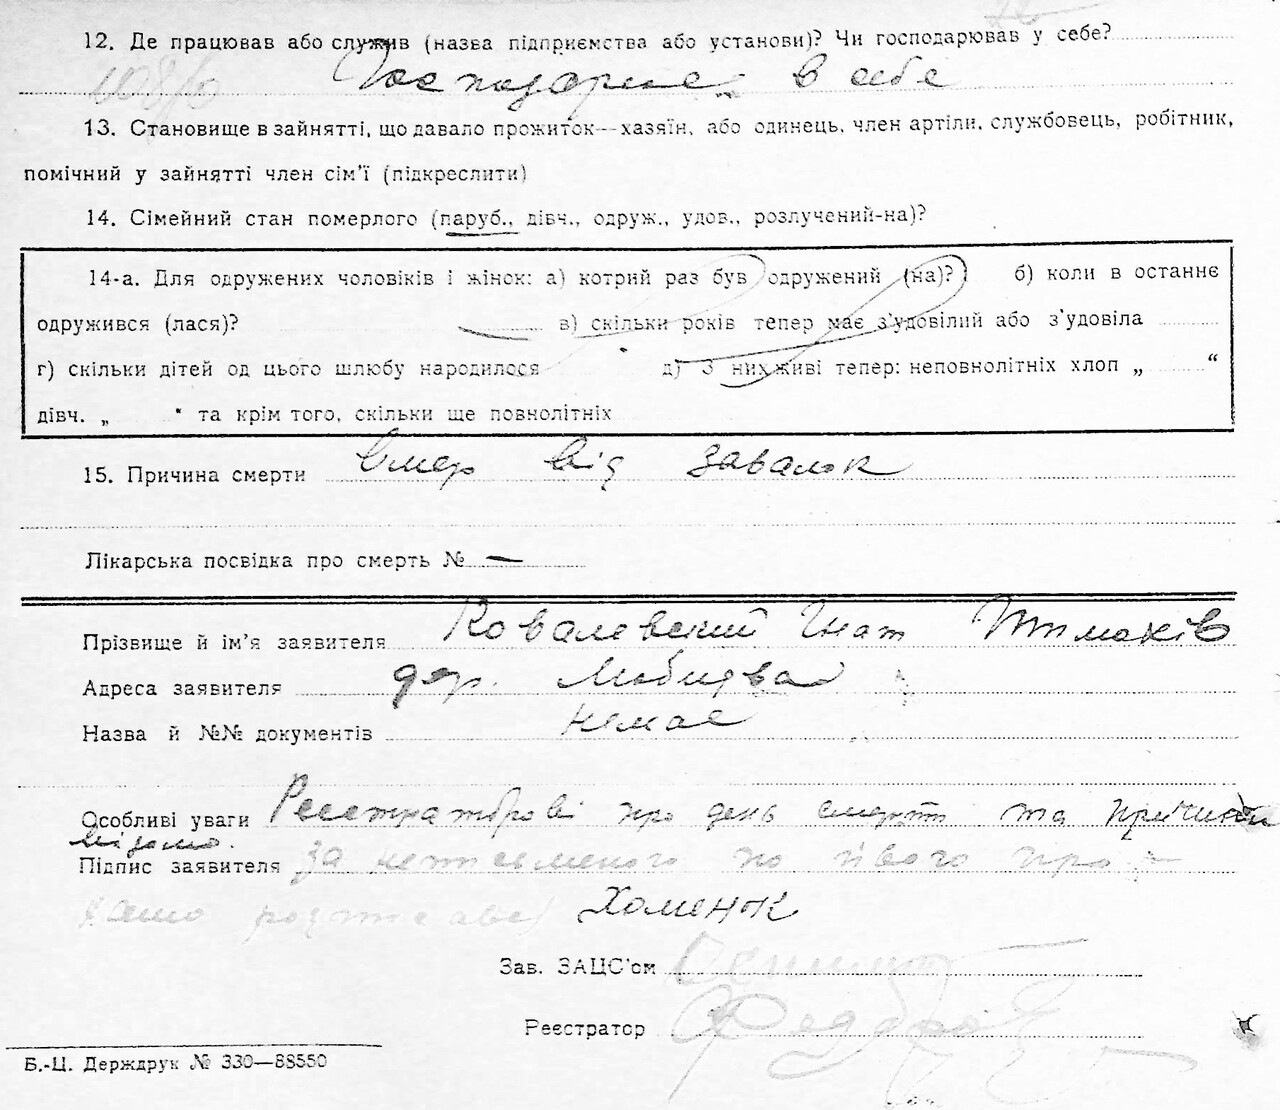 12. Де працював або служив (назва підприємства або установи)? Чи господарював у себе?
в себе
13. Становище в зайнятті, що давало прожиток—хазяїн, або одинець, член артіли, службовець, робітник,
помічний у зайнятті член сім'ї (підкреслити)
14. Сімейний стан померлого (паруб., дівч., одруж., удов., розлучений-на)?
14-а. Для одружених чоловіків і жінок: а) котрий раз був одружений (на)? б) коли в останнє
одружився (лася)? в) скільки років тепер має з'удовілий або з'удовіла
г) скільки дітей од цього шлюбу народилося д) З них живі тепер: неповнолітніх хлоп „ “
дівч. „ “ та крім того, скільки ще повнолітніх
15. Причина смерти вмер від завалок
Лікарська посвідка про смерть № —
Прізвище й ім'я заявителя Ковалевский Гнат
Адреса заявителя дер.
Назва й №№ документів немає
Особливі уваги Реєстраторові про день смерті та причини
відомо.
Підпис заявителя за неписьменого по його про-
Хоменок
Зав. ЗАЦС'ом
Реєстратор
Б.-Ц. Держдрук № 330—88550